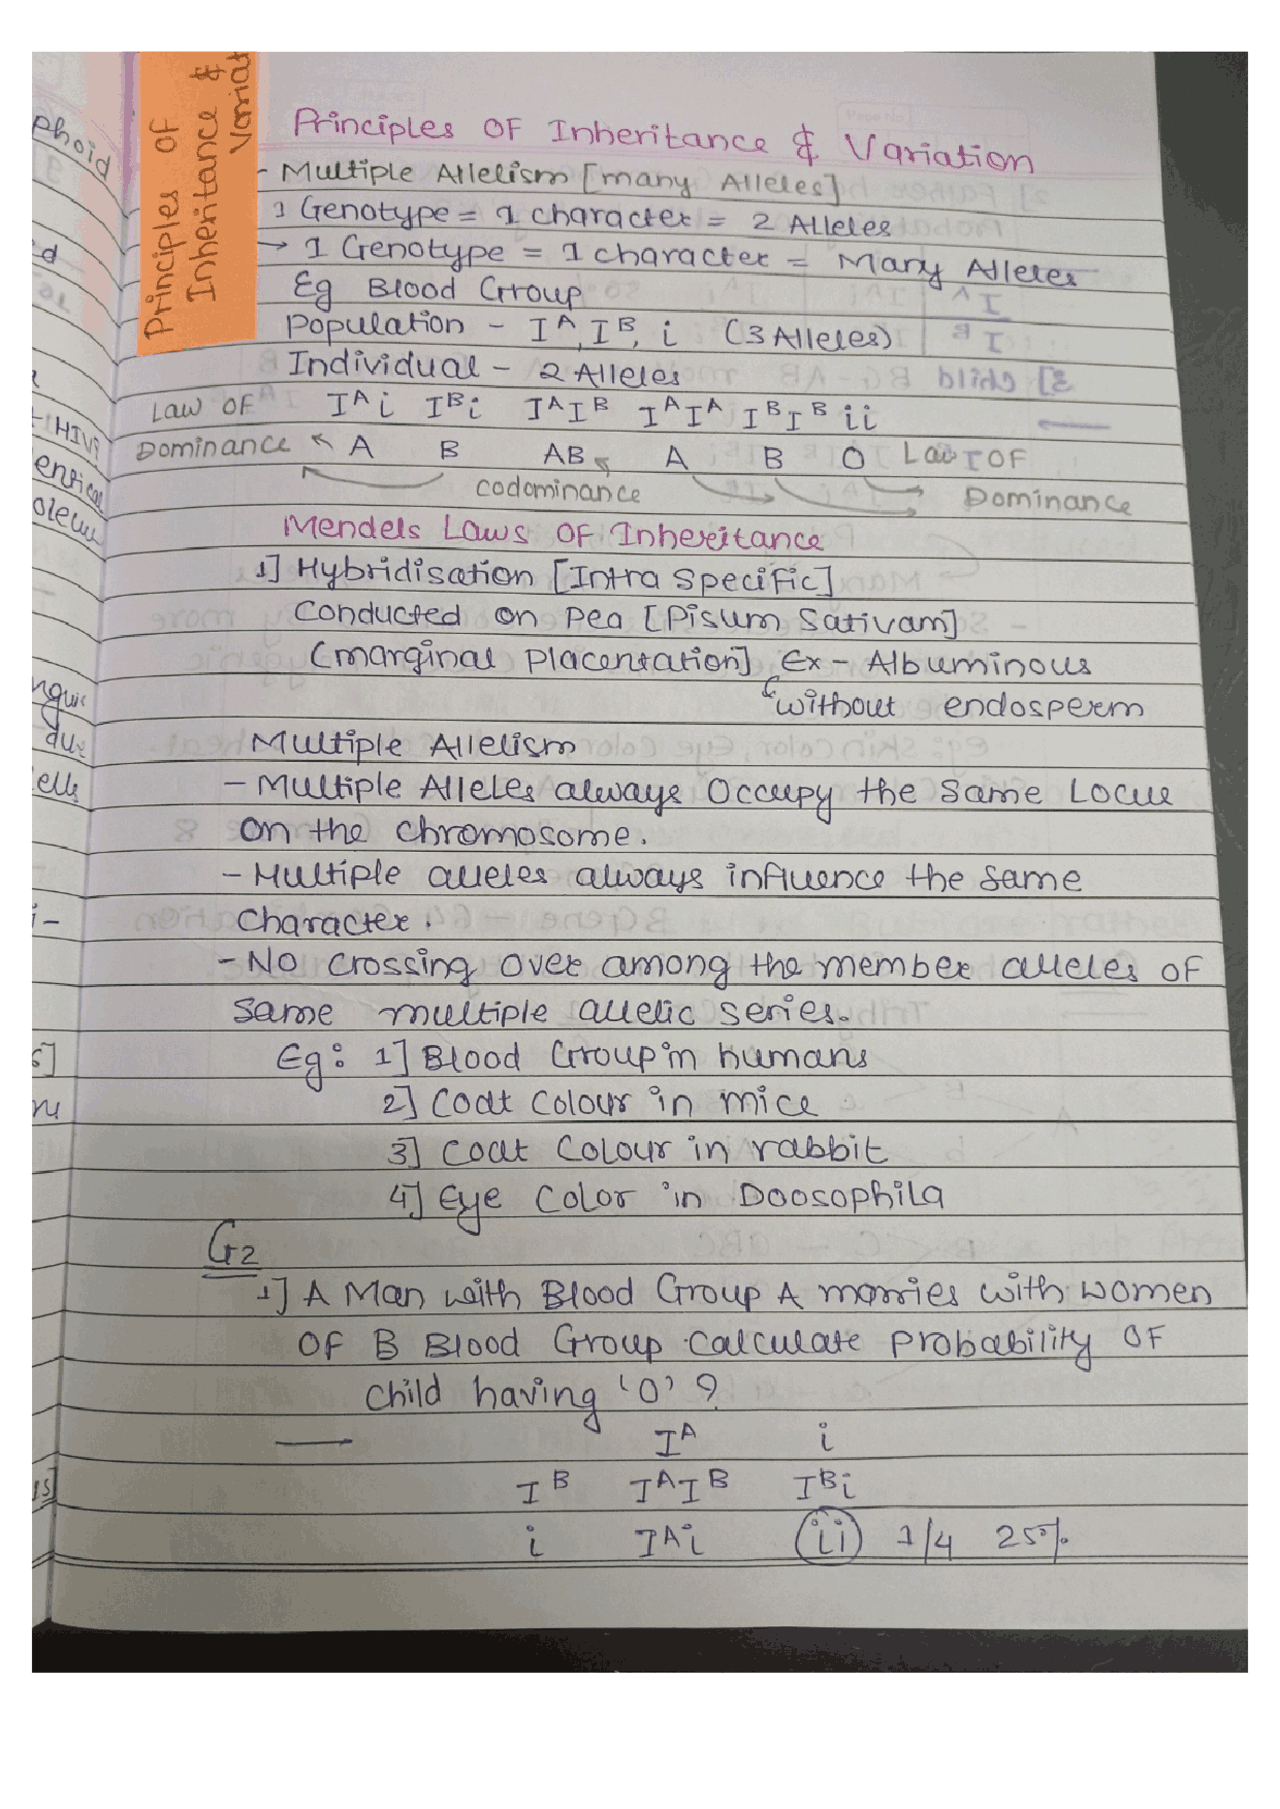 Principles OF
Inheritance &
Variat
Phoid
d
HIVi
entical
olecu
du
ells
i-
Principles OF Inheritance & Variation
- Multiple Allelism [many Alleles]
1 Genotype = 1 character = 2 Alleles
→ 1 Genotype = 1 character = Many Alleles
Eg Blood Group
Population - Iᴬ, Iᴮ, i (3 Alleles)
Individual - 2 Alleles
Law OF Iᴬi Iᴮi IᴬIᴮ IᴬIᴬ IᴮIᴮ ii
Dominance ↖ A B AB A B O Law OF
codominance Dominance
Mendels Laws OF Inheritance
1] Hybridisation [Intra Specific]
Conducted on Pea [Pisum Sativam]
(marginal Placentation] Ex - Albuminous
without endosperm
Multiple Allelism
- Multiple Alleles always Occupy the Same Locus
on the chromosome.
- Multiple alleles always influence the Same
Character.
- No crossing over among the member alleles of
same multiple allelic series.
Eg: 1] Blood Group in humans
2] Coat Colour in mice
3] Coat Colour in rabbit
4] Eye Color in Doosophila
G2
1] A Man with Blood Group A marries with women
OF B Blood Group Calculate Probability OF
Child having 'O' ?
— Iᴬ i
Iᴮ IᴬIᴮ Iᴮi
i Iᴬi ii 1/4 25%